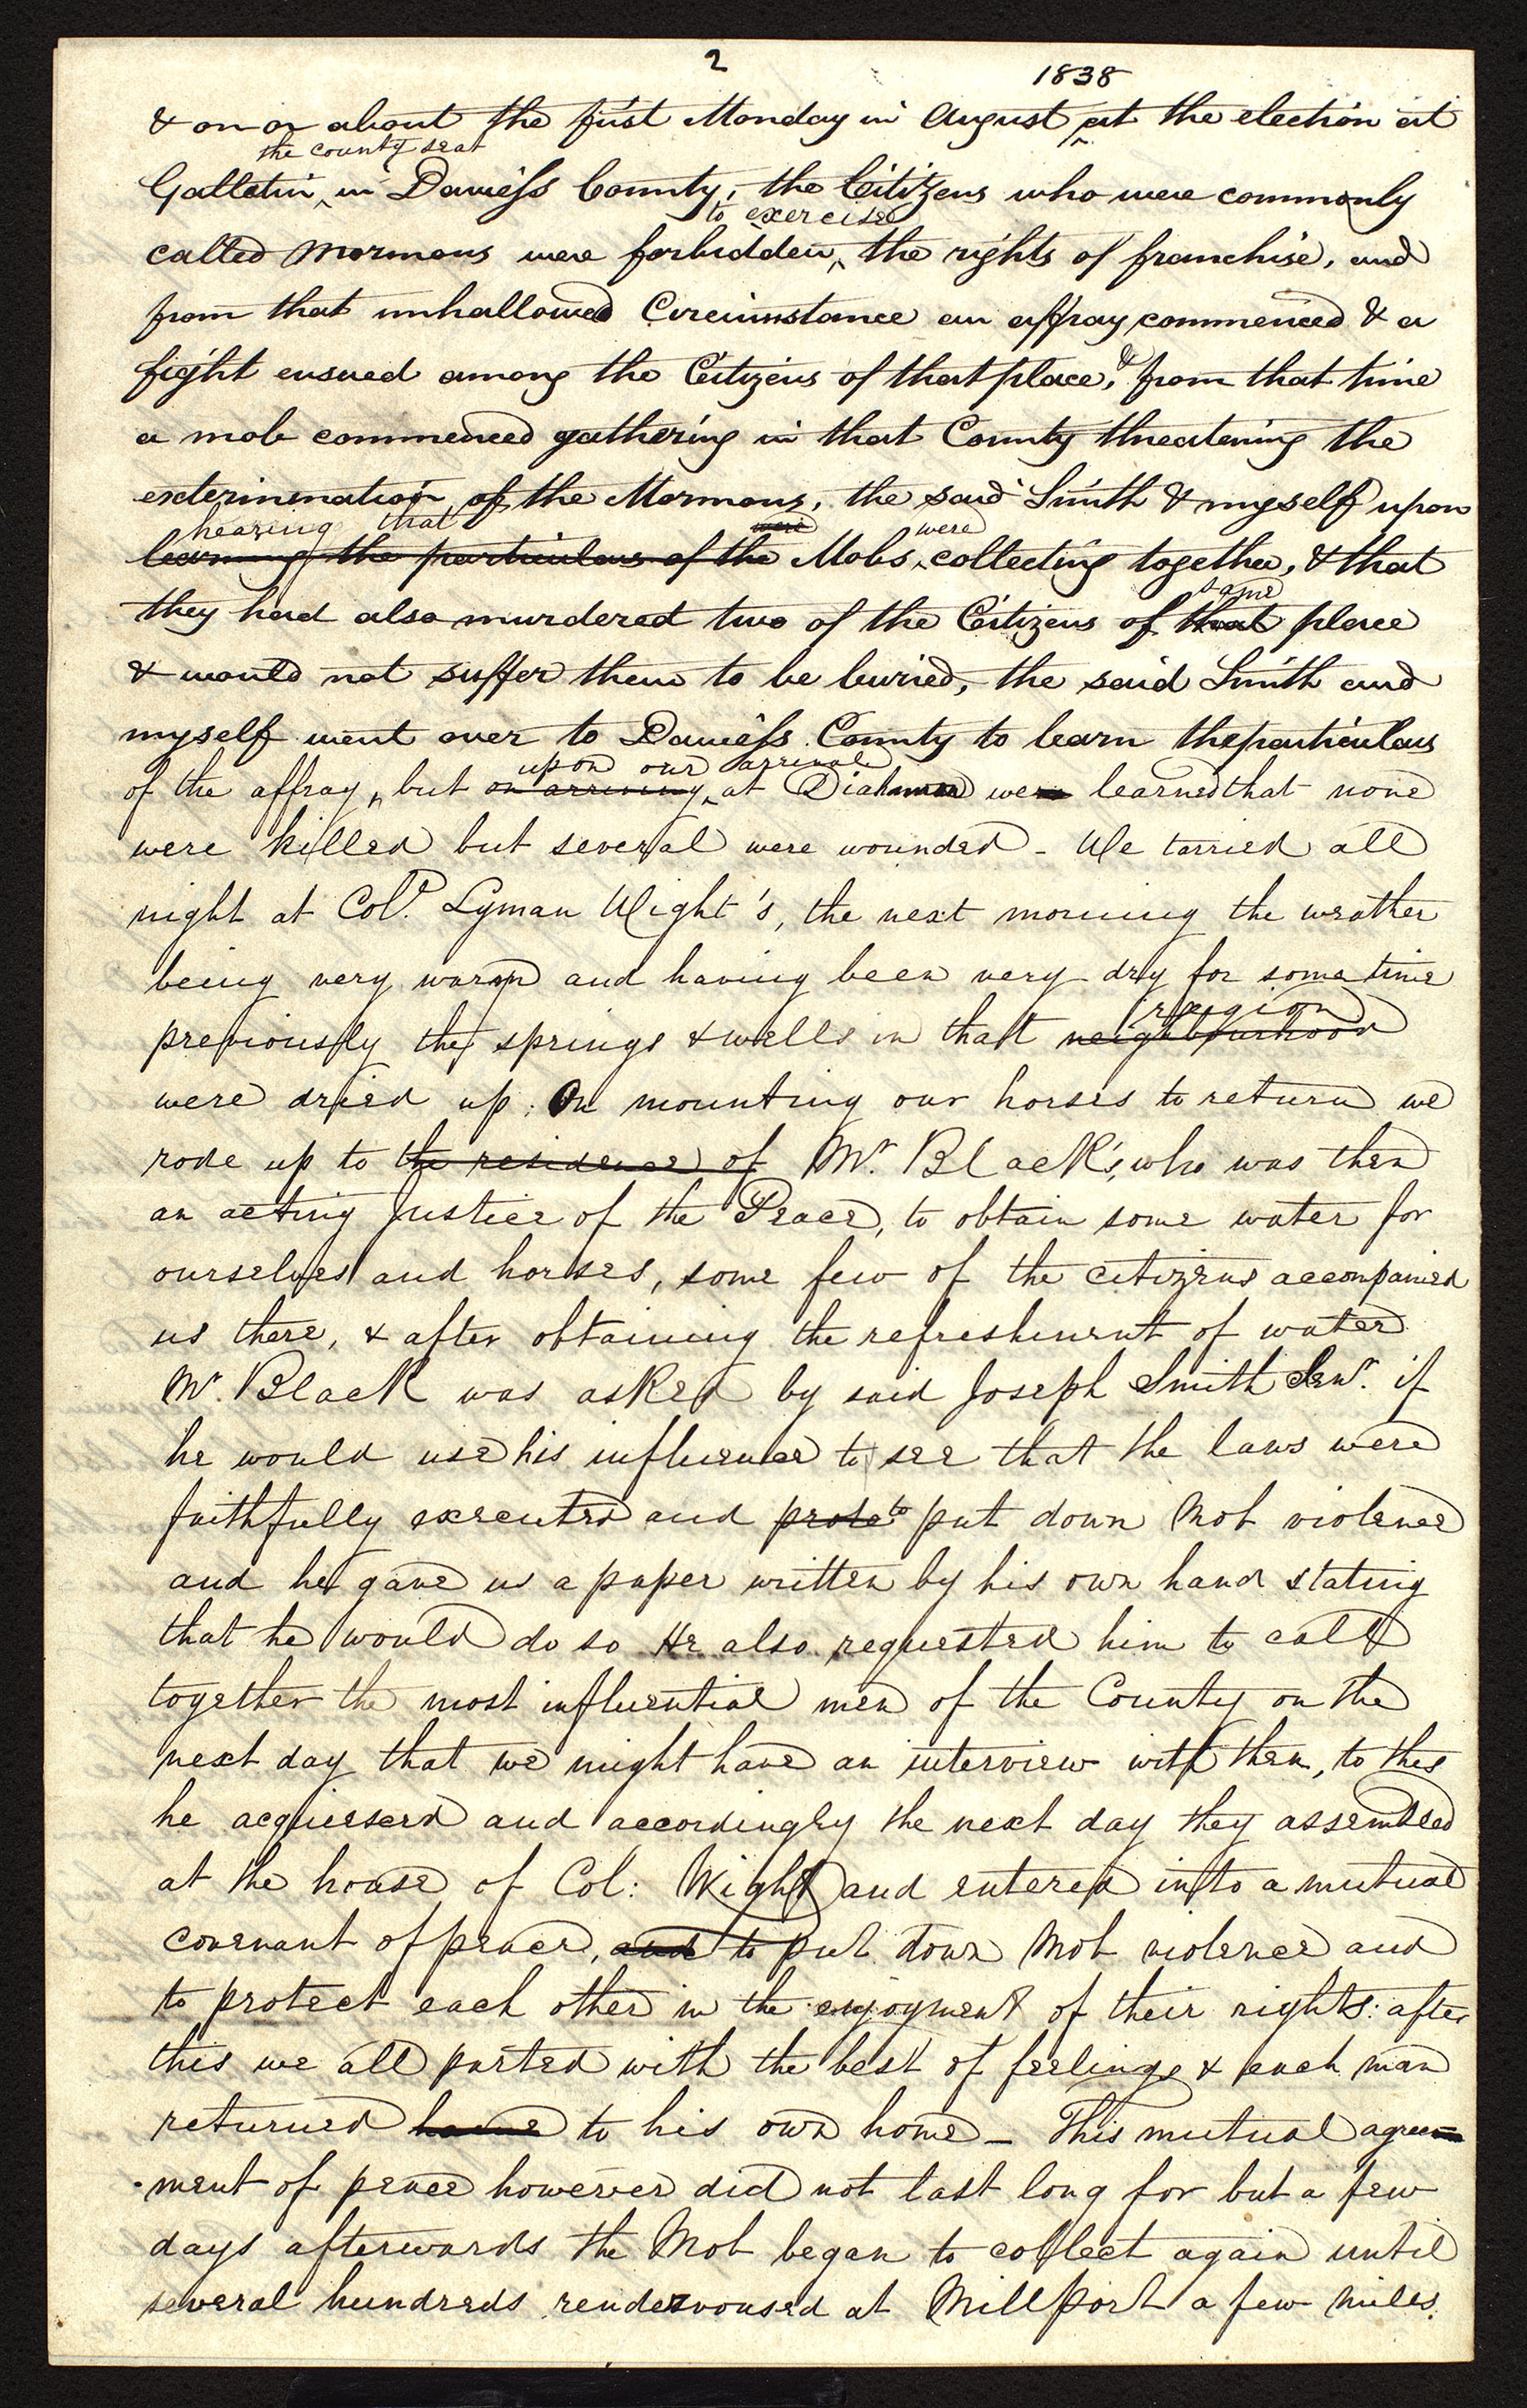 2
1838
& on or about the first Monday in August at the election at
the county seat
Gallatin, in Daviess County, the Citizens who were commonly
to exercise
called Mormons were forbidden the rights of franchise, and
from that unhallowed Circumstance an affray commenced & a
fight ensued among the Citizens of that place, & from that time
a mob commenced gathering in that County threatening the
extermination of the Mormons, the said Smith & myself upon
hearing that were were
learning the particulars of the Mobs collecting together, & that
same
they had also murdered two of the Citizens of that place
& would not suffer them to be buried, the said Smith and
myself went over to Daviess County to learn the particulars
upon our arrival
of the affray, but on arriving, at Diahman we learned that none
were killed but several were wounded - We tarried all
night at Col. Lyman Wight's, the next morning the weather
being very warm and having been very dry for some time
region
previously the springs & wells in that neighbourhood
were dried up; On mounting our horses to return we
rode up to the residence of Mr. Black's, who was then
an acting Justice of the Peace, to obtain some water for
ourselves and horses, some few of the citizens accompanied
us there, & after obtaining the refreshment of water
Mr. Black was asked by said Joseph Smith Senr. if
he would use his influence to see that the laws were
faithfully executed and to put down Mob violence
and he gave us a paper written by his own hand stating
that he would do so He also requested him to call
together the most influential men of the County on the
next day that we might have an interview with them, to this
he acquiesced and accordingly the next day they assembled
at the house of Col: Wight and entered into a mutual
covenant of peace, and to put down Mob violence and
to protect each other in the enjoyment of their rights: after
this we all parted with the best of feelings & each man
returned home to his own home - This mutual agree
-ment of peace however did not last long for but a few
days afterwards the Mob began to collect again until
several hundreds rendezvoused at Millport a few miles